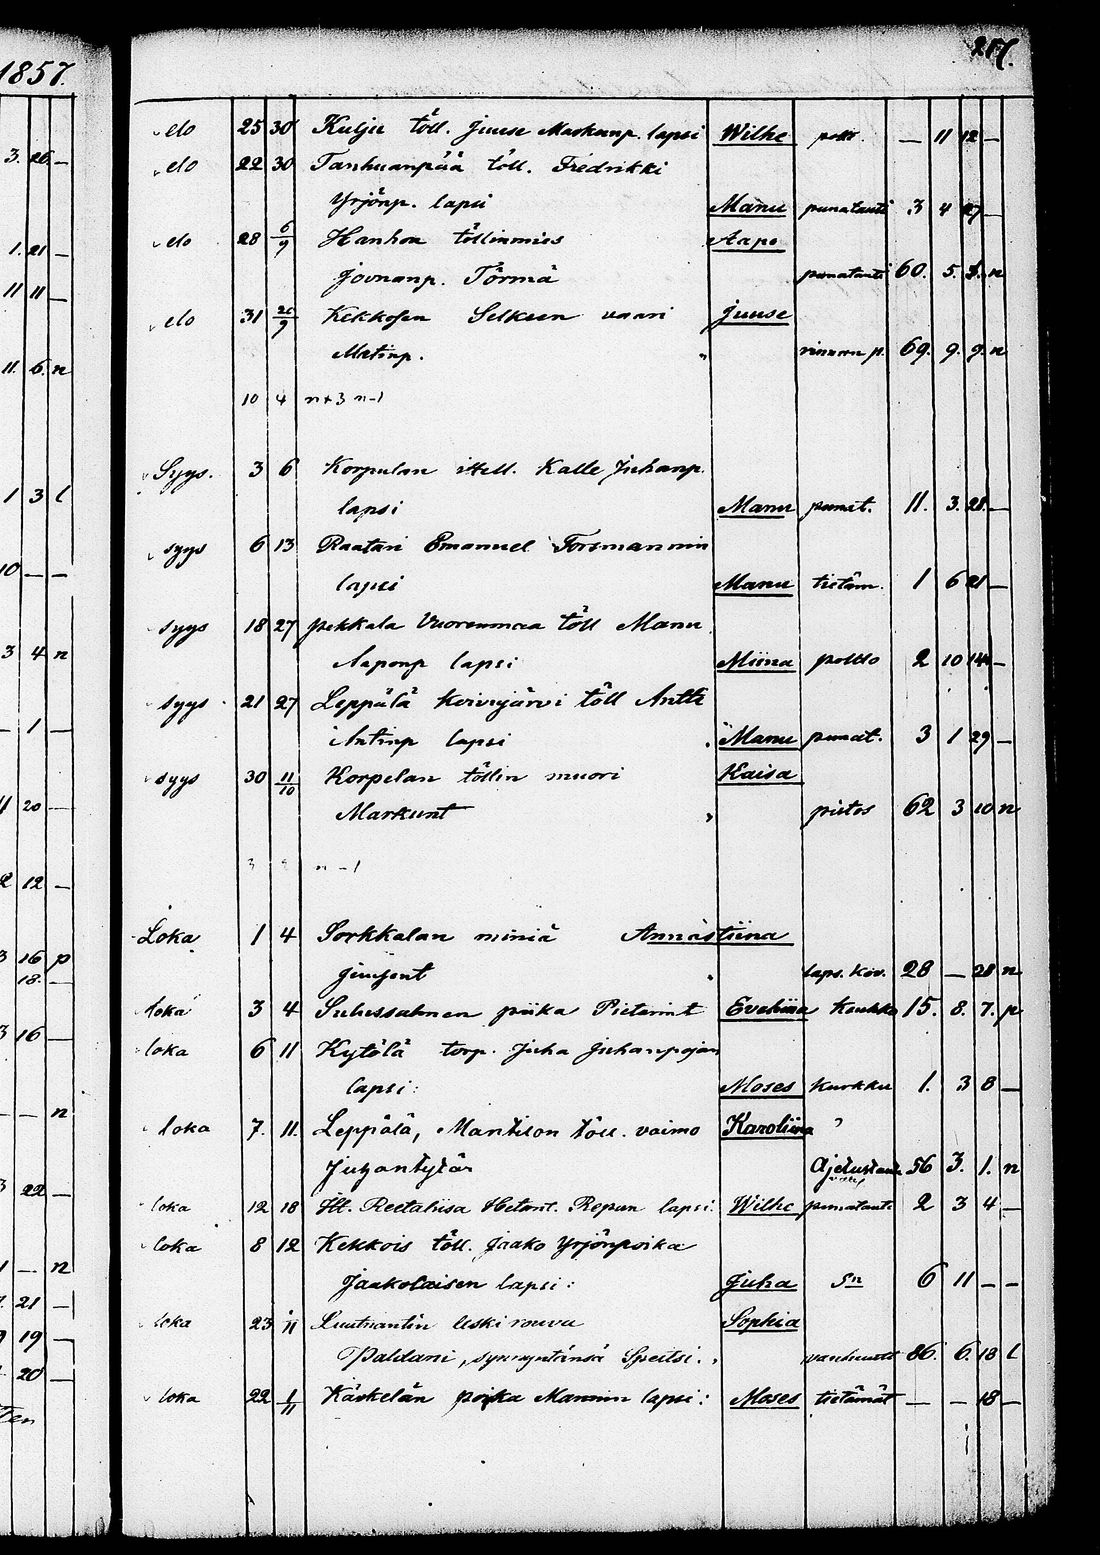 1857.
217.
elo 25 30 Kulju töll. Juuse Markunp. lapsi Wilhe polt. — 11 12 —
elo 22 30 Tanhuanpää töll. Fredrikki
Yrjönp. lapsi Manu punatauti 3 4 27 —
elo 28 6/9 Hanhon töllinmies Aapo
Joonanp. Törmä punatauti 60. 5. n
elo 31 26/9 Kekkosen Selkeen vaari Juuse
Matinp. rinnan p. 69. 9. 9. n
10 4 n+3 n-1
Syys. 3 6 Korpulan itell. Kalle Juhanp.
lapsi Manu punat. 11. 3. 28. —
syys 6 13 Raatari Emanuel Forsmannin
lapsi Manu tietäm. 1 6 21 —
syys 18 27 Pekkala Vuorenmaa töll Manu
Aaponp lapsi Miina poltto 2 10 14 —
syys 21 27 Leppälä Koivujärvi töll Antti
Antinp lapsi Manu punat. 3 1 29 —
syys 30 11/10 Korpelan töllin muori Kaisa
Markunt pistos 62 3 10 n
3 n -1
Loka 1 4 Sorkkalan miniä Annastiina
Juujont laps. kov. 28 — 28 n
loka 3 4 piika Pieterint Eveliina Keuhko 15. 8. 7. p
loka 6 11 Kytölä torp. Juha Juhanpojan
lapsi: Moses kurkku 1. 3 8 —
loka 7. 11. Leppälä, Mantilon töll. vaimo Karoliina ?
Juhantytär Ajetustauti 56 3. 1. n
loka 12 18 Itl. Reetaliisa Hetant. Repun lapsi: Wilhe punatauti 2 3 4 —
loka 8 12 Kekkois töll. Jaako Yrjönpoika
Jaakolaisen lapsi: Juha sn 6 11 — —
loka 23 1/11 Luutnantin leski rouva Sophia
Paldani, synnyntänsä Speitsi. vanhuutt 86. 6. 18 l
loka 22 1/11 Käskelän poika Mannin lapsi: Moses tietämät — — 18 —